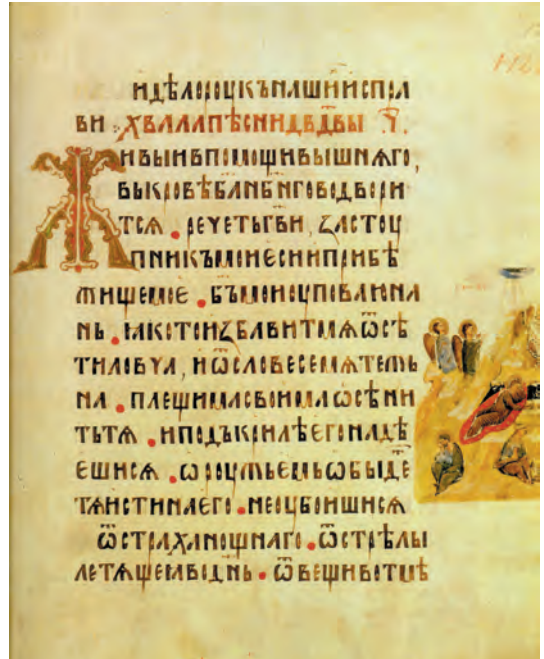 и дѣла роукъ нашии испра
ви ⁘ хвала пѣсни дв҃двы ч҃
Живыи в помощи вышнѧго,
вы кровѣ б҃а нб҃нго водвори
тсѧ . речеть г҃ви, застоу
пникъ мои еси и прибѣ
жище мое . б҃ъ мои оуповаю на
нь . ꙗко тои избавит мѧ ѿ сѣ
ти ловча, и ѿ словесе мѧтежь
на . плещима своима ѡсѣни
ть тѧ . и подъ крилѣ его надѣ
ешисѧ . ѡроужьемь ѡбыде
тѧ истина его . не оубоишисѧ
ѿ страха нощнаго . ѿ стрѣлы
летѧщеꙗ в дн҃ь . ѿ вещи во тмѣ